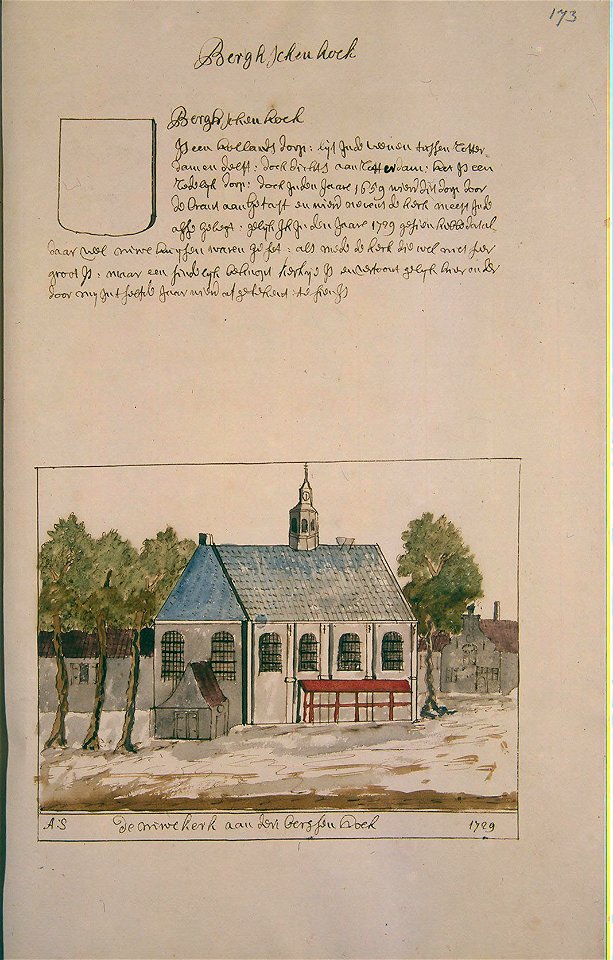 173
Berghschenhoek
Berghschenhoek
Is een hollands dorp: lijt Inde veenen tussen Rotter-
dam en delft: doch dichts aan Rotterdam: het Is een
Redelijk dorp: doch Inden Jaare 1659 wierd dit dorp door
de brant aangetast en wierd nevens de kerk meest Inde
asse geleyt: gelijk Ik Inden Jaare 1729 gesien hebbe datal
daar veel niwe huijsen waren geset: als mede de kerk die wel niet seer
groot Is: maar een sindelijk beknopt kerkije Is en vertoont gelijk hier onder
door mij Int selfde Jaar wierd afgetekent: te sien Is
A:S De niwe kerk aan den bergsen hoek 1729